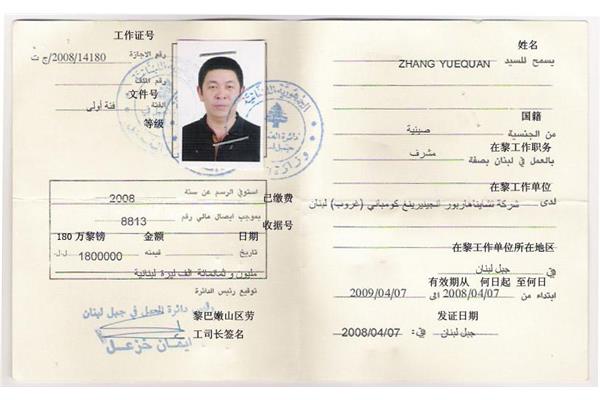 工作证号
رقم الاجازة 14180/2008/ج ت
رقم الملف
文件号
الفئة فئة أولى
等级
استوفي الرسم عن سنة 2008 已缴费
بموجب ايصال مالي رقم 8813 收据号
180 万黎镑 金额 日期
تاريخ قيمته 1800000 ل.ل
مليون و ثمانمائة الف ليرة لبنانية
توقيع رئيس الدائرة
رئيس دائرة العمل في جبل لبنان
黎巴嫩山区劳
工司长签名
ايمان خزعل
姓名
يسمح للسيد ZHANG YUEQUAN
国籍
من الجنسية صينية
在黎工作职务
بالعمل في لبنان بصفة مشرف
在黎工作单位
لدى شركة تشايناهاربور انجينيرينغ كومباني (غروب) لبنان
在黎工作单位所在地区
في جبل لبنان
有效期从 何日起 至何日
ابتداء من 2008/04/07 الى 2009/04/07
发证日期
جبل لبنان في: 2008/04/07